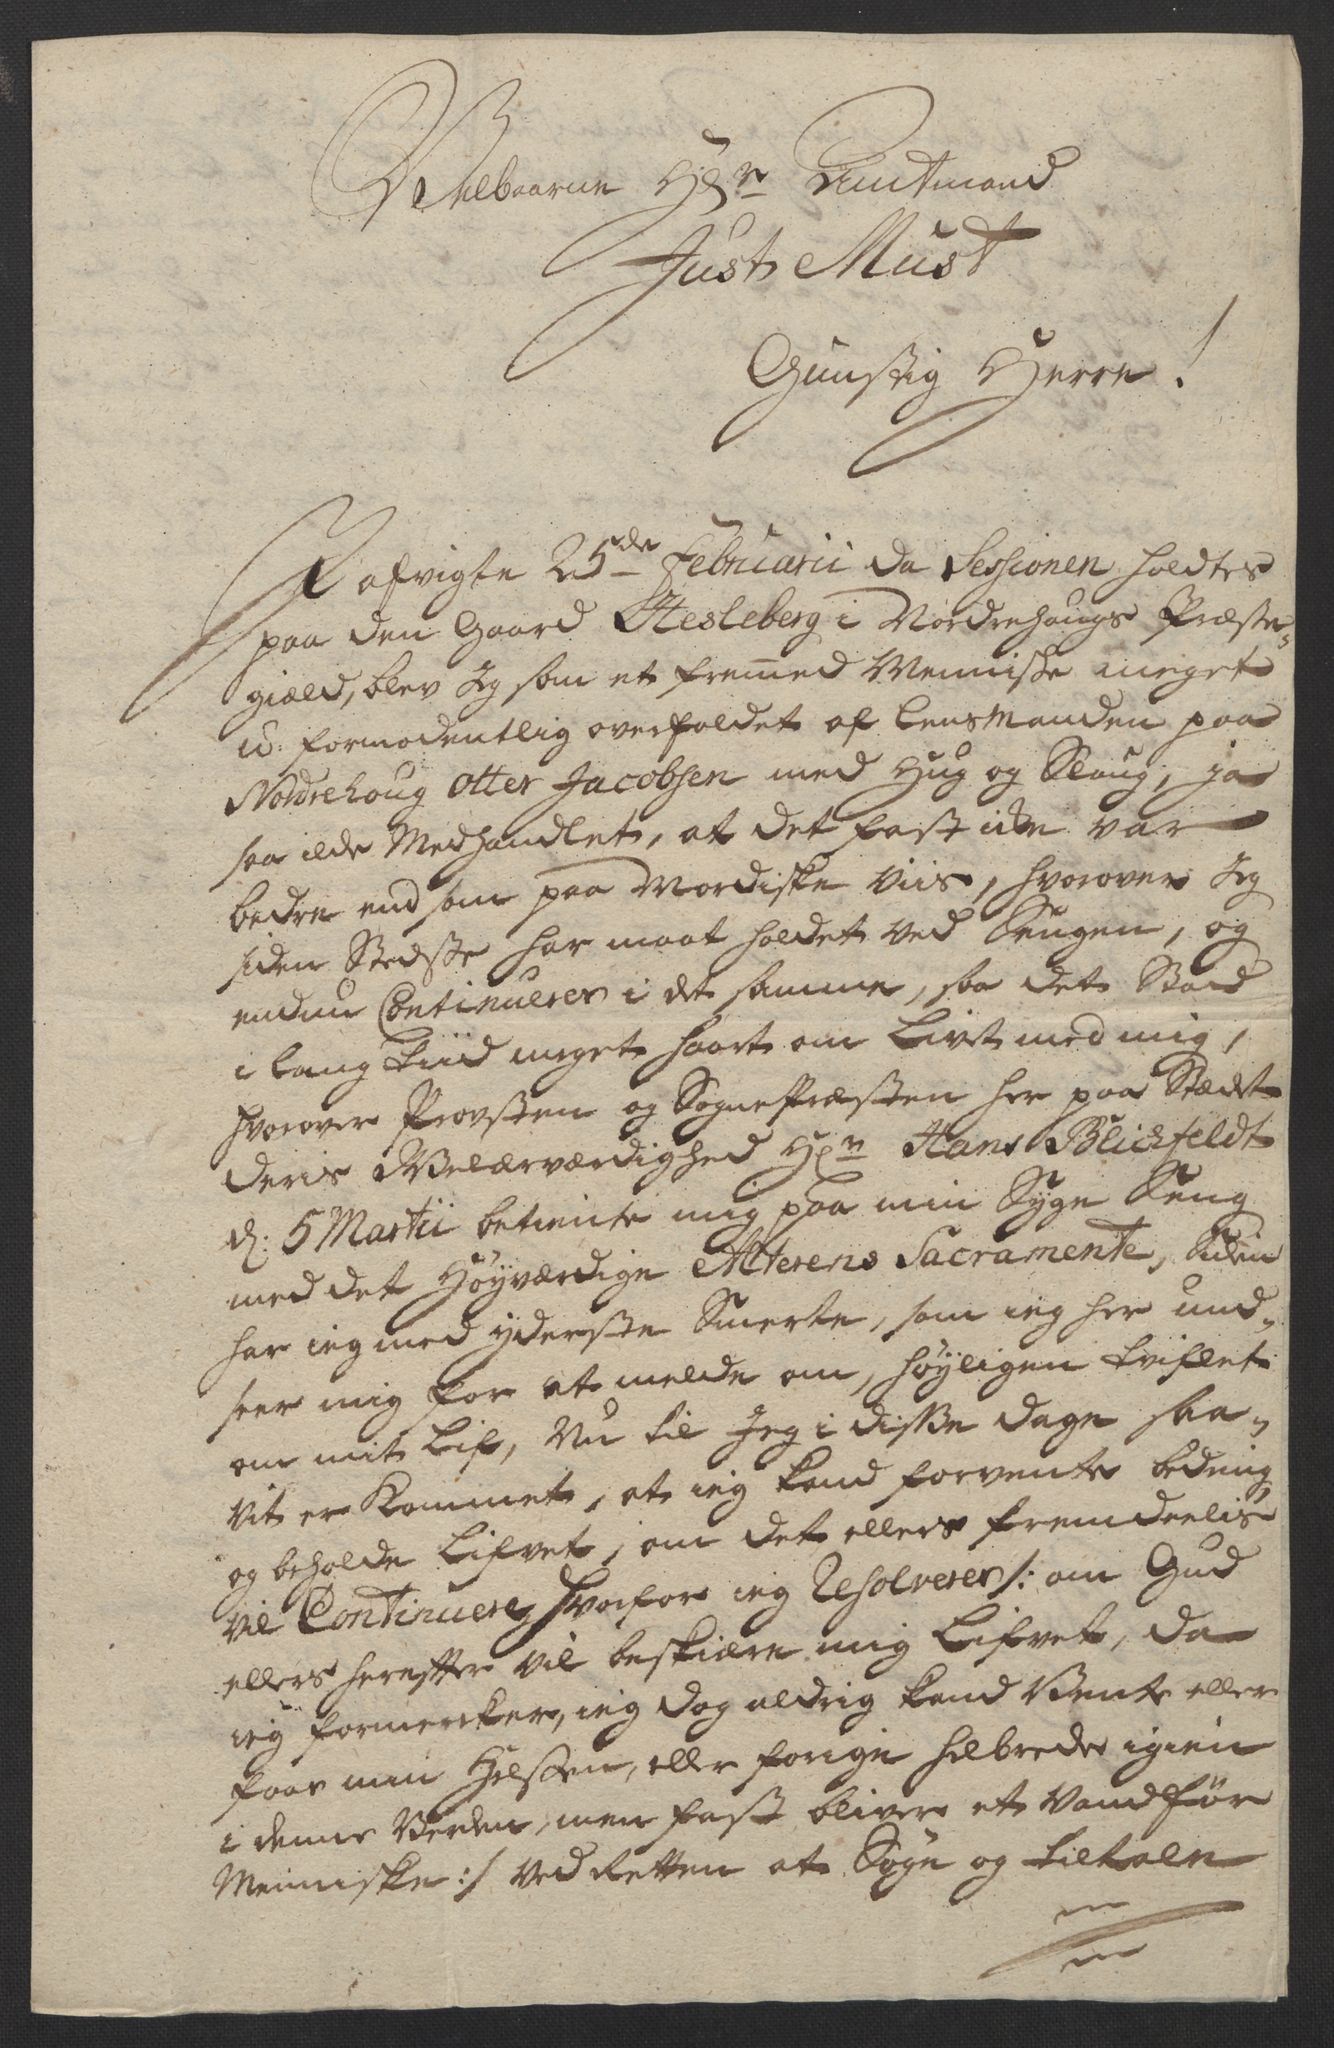 Velbaarne Hr: Amtmand
Just Must
Gunstig Herre!
I afvigte 25de Februarii da Sessionen holdtes
paa den Gaard Hesleberg i Nordrehougs Præste„
giæld, blev Jeg som et fremmed Menniske meget
u: formodentlig overfaldet af Lensmanden paa
Nordrehoug Otter Jacobsen med Hug og Slaug, ja
saa ilde Medhandlet, at det fast icke var
bedre end som paa Mordiske Viis, hvorover Jeg
siden Stedsse har maat holdet ved Sengen, og
endnu Continuerer i det samme, saa det Stod
i lang Tiid meget haart om Livet med mig,
hvorover Provsten og Sognepræsten her paa Stædet
deris Velærværdighed Hr: Hans Blichfeldt
d: 5 Martii betiente mig paa min Syge Seng
med det Høyværdige Alterens Sacramente, Siden
har ieg med yderste Smerte, som ieg her und„
seer mig for at melde om, høyligen tviflet
om mit Lif, Nu til Jeg i disse dage saa„
vit er Kommet, at ieg kand forvente bedring
og beholde Lifvet, om det ellers fremdeelis
vil Continuere, hvorfor ieg Resolverer /: om Gud
ellers herefter vil beskiære mig Lifvet, da
ieg formercker, ieg dog aldrig kand Vente eller
faar min Helsen, eller forige helbrede igien
i denne Verden, men fast bliver et Vandfør
Menniske :/ ved Retten at Søge og tiltale